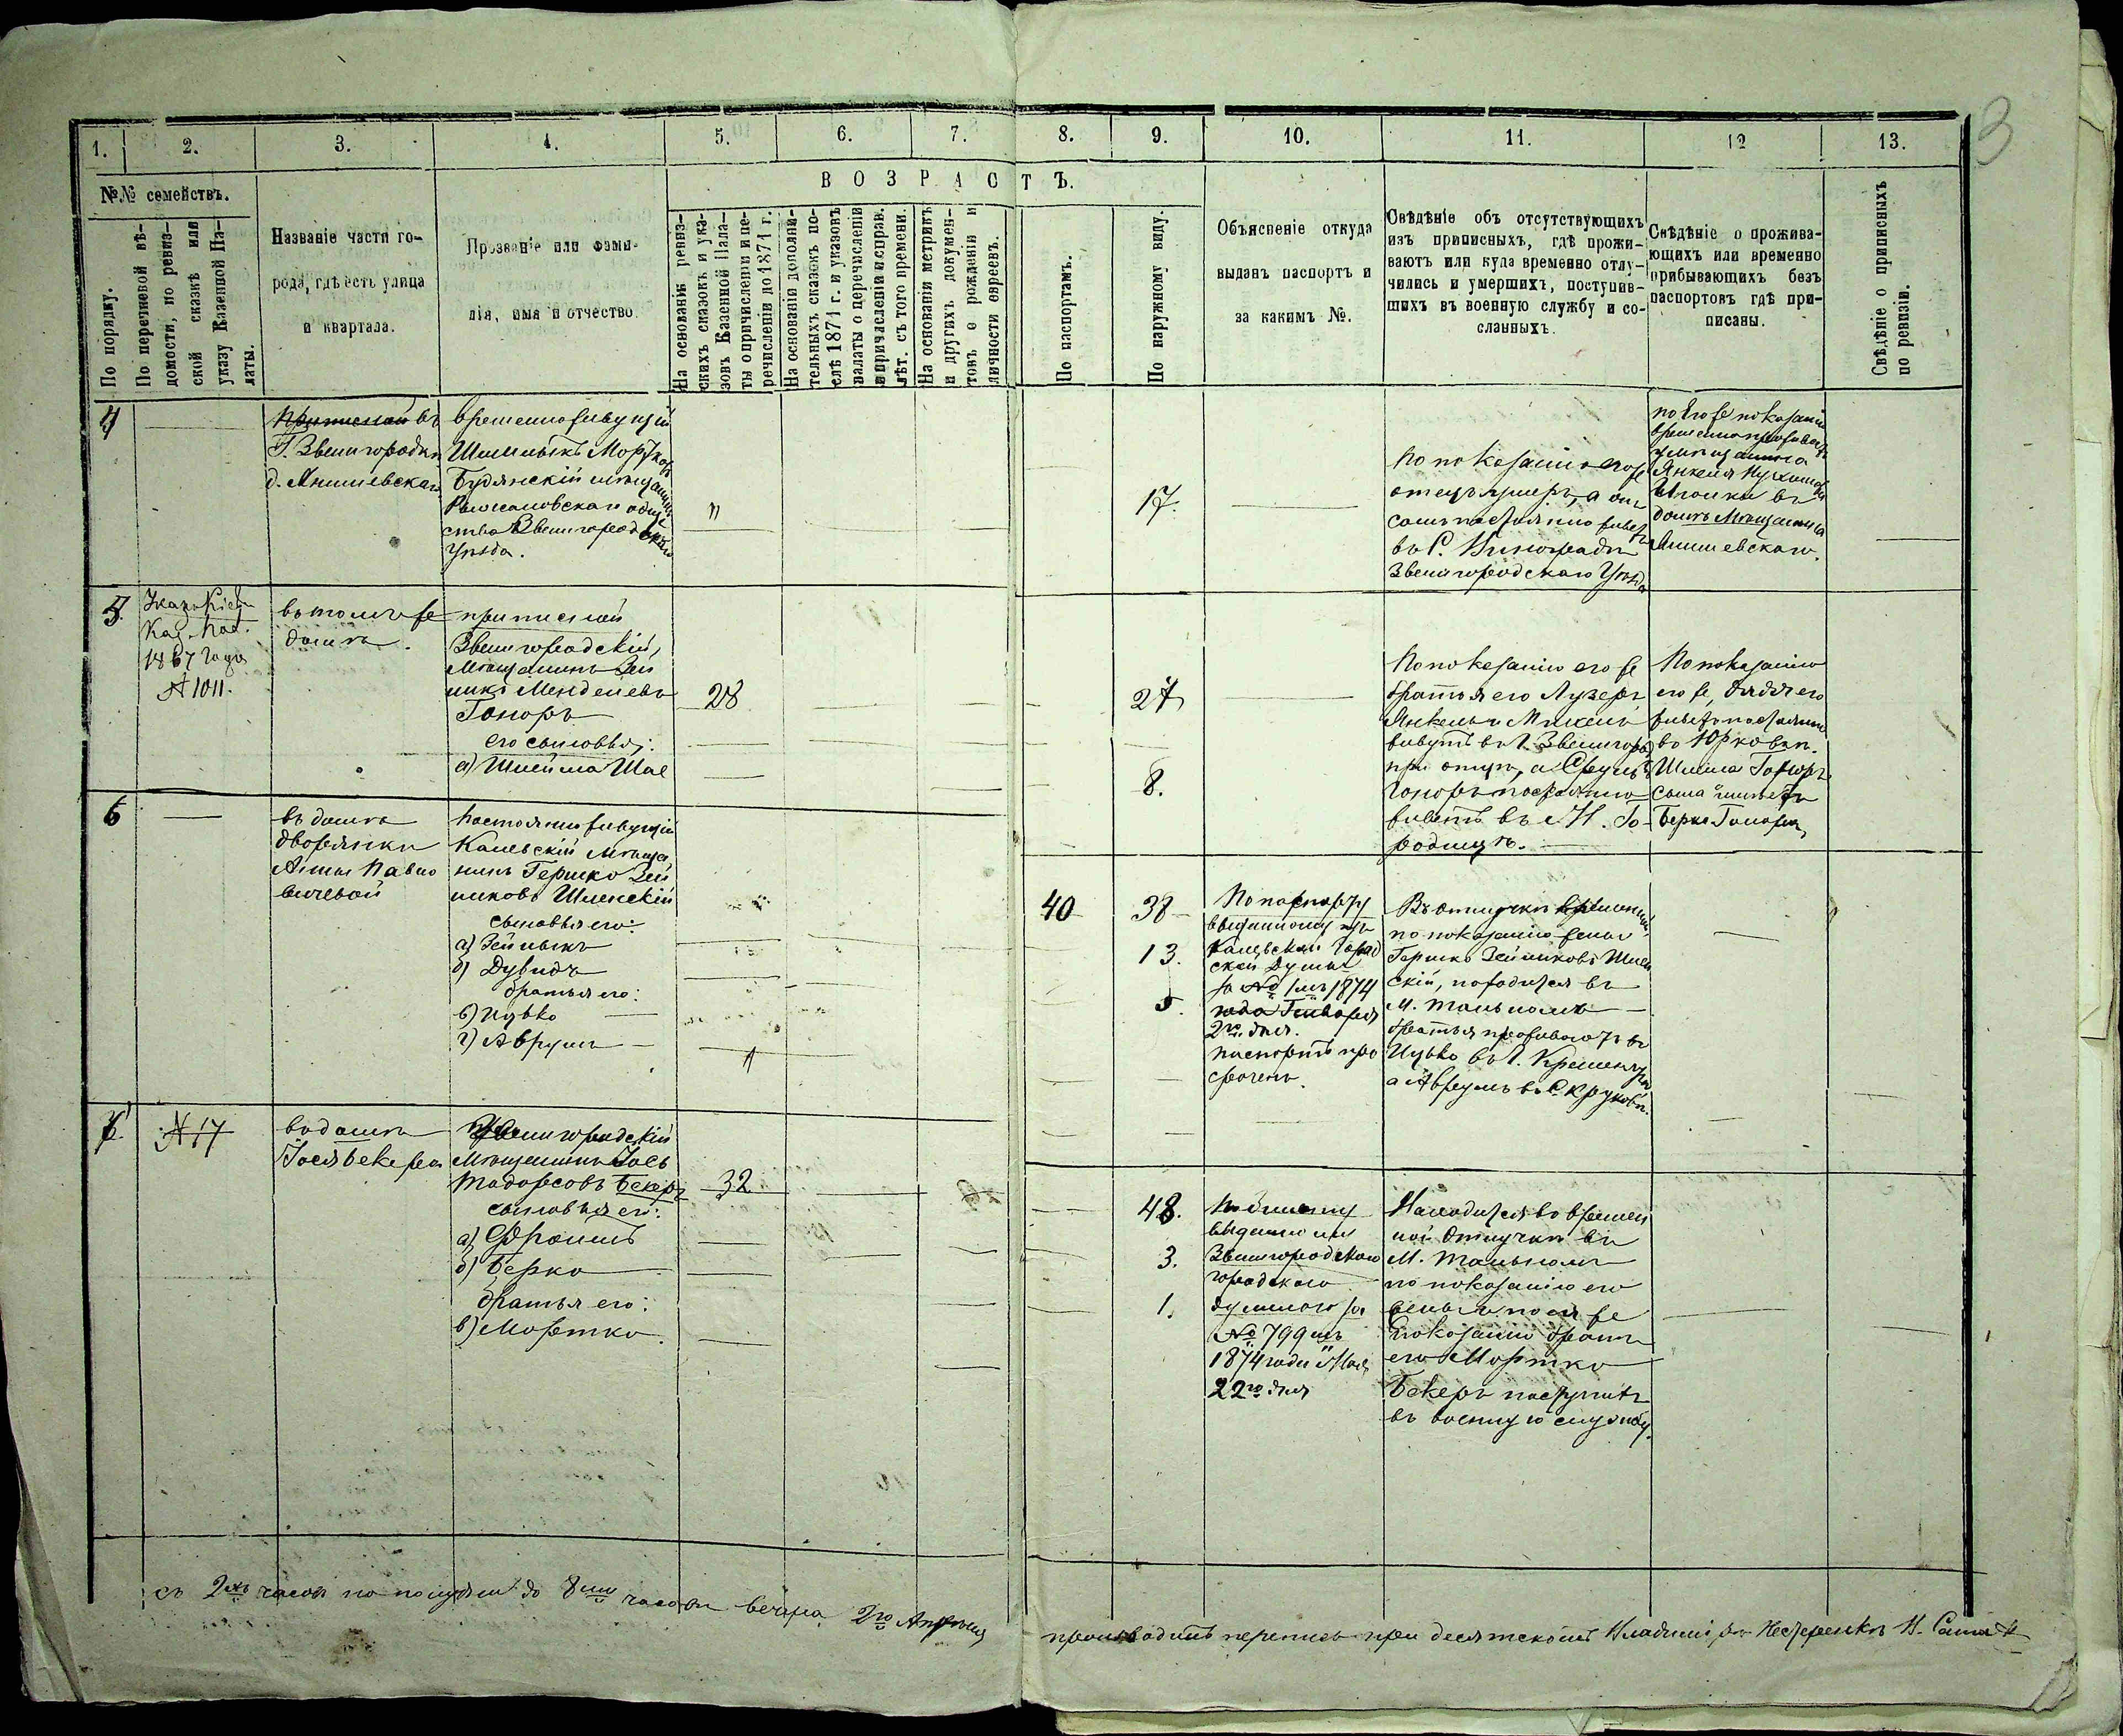 3
1.
2.
3.
4.
5.
6.
7.
8.
9.
10.
11.
12
13.
№№ семействъ.
По порядку.
По перечневой вѣ-
домости, по ревиз-
ской сказкѣ или
указу Казенной Па-
латы.
Названіе части го-
рода, гдѣ есть улица
и квартала.
Прозваніе или фами-
лія, имя и отчество.
ВОЗРАСТЪ.
На основаніи ревиз-
скихъ сказокъ и ука-
зовъ Казенной Пала-
ты о причисленіи и пе-
речисленіи до 1871 г.
На основаніи дополни-
тельныхъ сказокъ по-
слѣ 1871 г. и указовъ
палаты о перечисленіи
и причисленіи и справ.
лѣт. съ того времени.
На основаніи метрикъ
и другихъ докумен-
товъ о рожденіи и
личности евреевъ.
По паспортамъ.
По наружному виду.
Объясненіе откуда
выданъ паспортъ и
за какимъ №.
Свѣдѣніе объ отсутствующихъ
изъ приписныхъ, гдѣ прожи-
ваютъ или куда временно отлу-
чились и умершихъ, поступив-
шихъ въ военную службу и со-
сланныхъ.
Свѣдѣніе о прожива-
ющихъ или временно
прибывающихъ безъ
паспортовъ гдѣ при-
писаны.
Свѣдѣніе о приписныхъ
по ревизіи.
4
въ
Г. Звенигородки
д. Янишевскаго
временно живущій
Шмилыкъ Мортковъ
Будянскій мѣщанинъ
обще
ства Звенигородскаго
Уѣзда.
17.
По показанію его же
отецъ умеръ, а онъ
самъ постоянно живетъ
въ С. Виноградѣ
Звенигородскаго Уѣзда
по его же показанію
временно проживаетъ
Янкеля
въ
домѣ мѣщанина
Янишевскаго.
5.
Указъ Кіев.
Каз. Пал.
1867 года
№ 1011.
въ томъ же
домѣ.
приписной
Звенигородскій
Мѣщанинъ Зей
Менделевъ
Гоноръ
его сыновья:
а) Шлейма Шае
28
27
8.
По показанію его же
братья его Лузеръ
Янкель и Михель
живутъ въ Г. Звенигородкѣ
при отцѣ, а Сруль
Гоноръ постоянно
живетъ въ М. Го-
родищѣ.
По показанію
его же, дядя его
живетъ постоянно
въ Юрковкѣ.
Шлиома Гоноръ
сына имѣетъ
Берка Гонора,
6
въ домѣ
дворянки
Анны Павло
вичевой
Постоянно живущій
Каневскій мѣща
нинъ Гершко Зей
ликовъ Шленскій
сыновья его:
а) Зейлыкъ
б) Дувидъ
братья его:
в) Ицько
г) Аврумъ
40
38
13.
5.
По паспорту
выданному изъ
Каневской Город
ской Думы
за № 1 мъ 1874
года Генваря
2го дня.
паспортъ про
сроченъ.
Въ отлучки временной
по показанію жены
Гершко Зейликовъ Шлен
скій, находится въ
М. Тальномъ
братья проживаютъ въ
Ицько въ Г. Кременчугѣ
а Аврумъ въ С. Крюковѣ.
7.
№ 17
въ домѣ
Іося Бекера
Звенигородскій
Мѣщанинъ Іось
Тодоресовъ Бекеръ
сыновья его:
а) Фроимъ
б) Берко
братья его:
в) Мортко.
32
48.
3.
1.
По билету
выданному
Звенигородскаго
городского
думнаго за
№ 799 мъ
1874 года Мая
22го дня
Находится во времен
ной отлучки въ
М. Тальномъ
по показанію его
жены и по ея же
показанію братъ
его Мортко
Бекеръ поступилъ
въ военную службу.
съ 2хъ часовъ по полудни до 8ми часовъ вечера 2го Апрѣля
производилъ перепись при десятскомъ Владимірѣ Нестеренкѣ